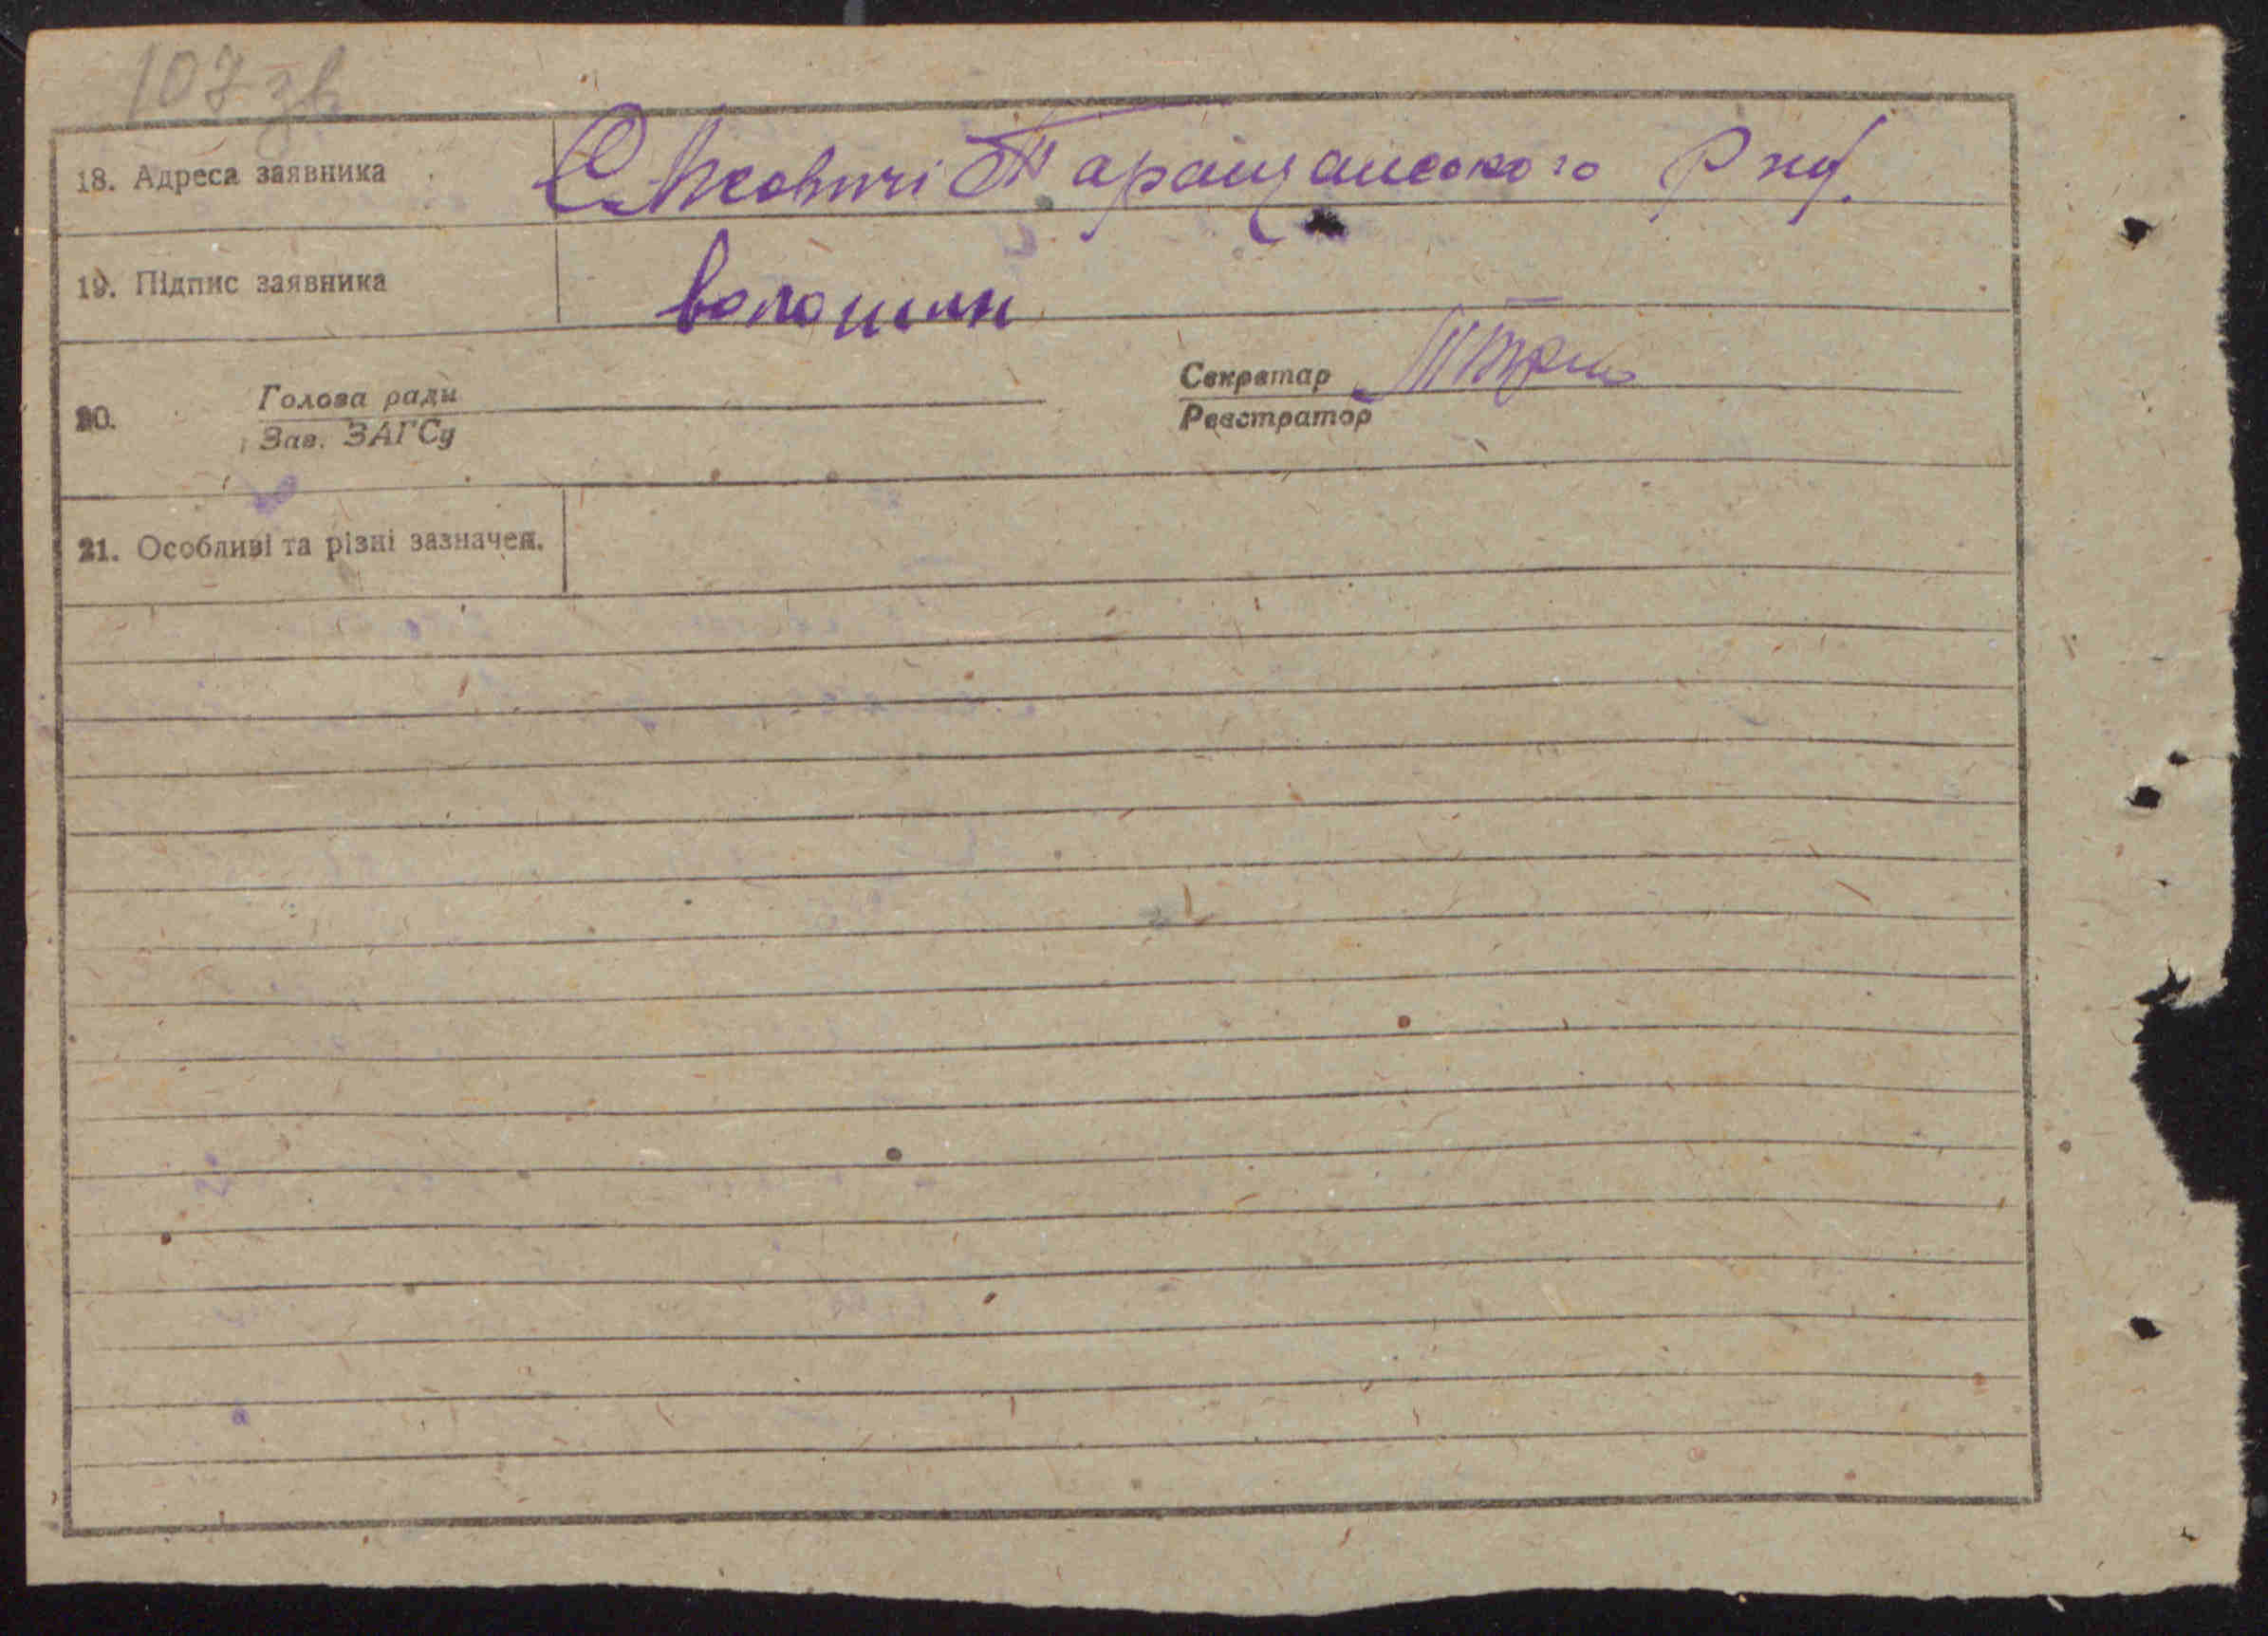 107 зв
18. Адреса заявника С. Лісовичі Таращанського Р ну.
19. Підпис заявника Волошин
20. Голова ради Секретар
Зав. ЗАГСу Реєстратор
21. Особливі та різні зазначен.